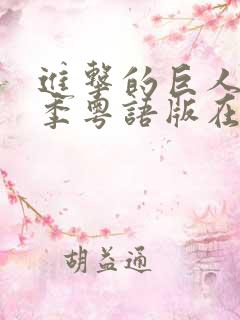 進撃的巨人
季粵語版在
胡益通